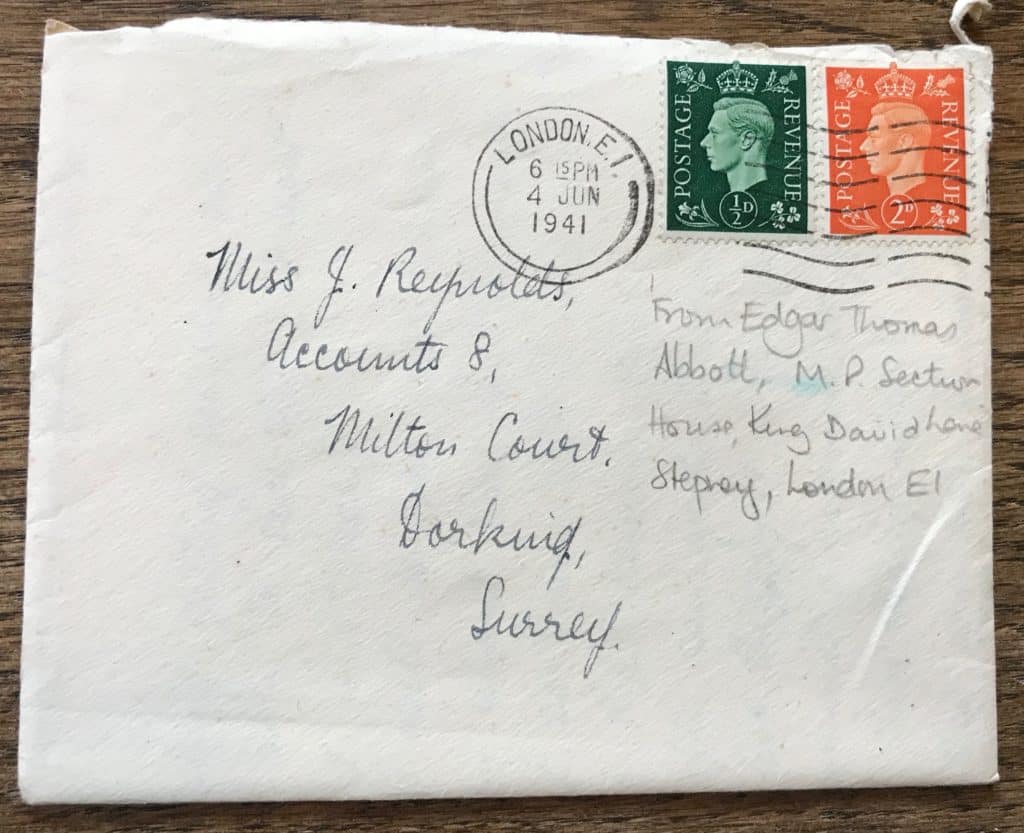 LONDON. E.1.
6 15 PM
4 JUN
1941
POSTAGE REVENUE
½D
POSTAGE REVENUE
2D
Miss J. Reynolds,
Accounts 8,
Milton Court,
Dorking,
Surrey.
From Edgar Thomas
Abbott, M.P. Section
House, King David Lane
Stepney, London E1